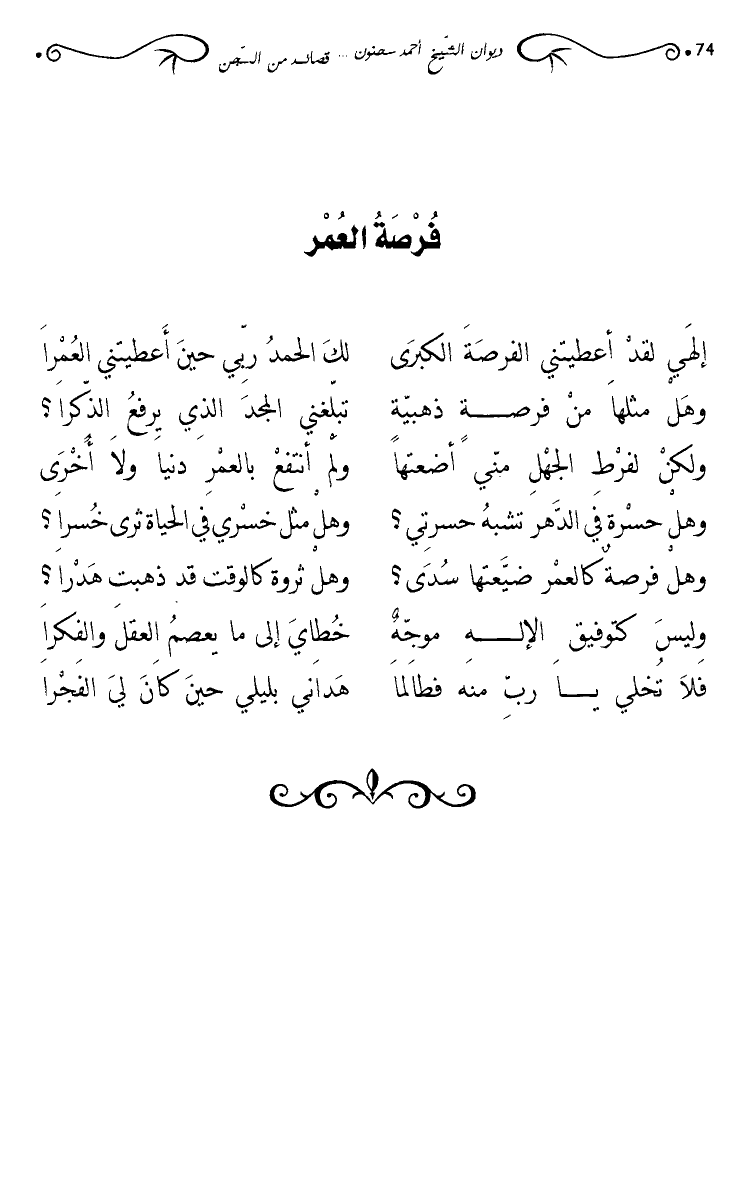 74 ديوان الشّيخ أحمد سحنون ... قصائد من السّجن
فُرْصَةُ العُمْر
إلهَي لقدْ أعطيتّني الفرصَة الكبرَى لكَ الحمدُ ربّي حينَ أَعطيتّني العُمْرا
وهَلْ مثلهاَ منْ فرصــــةٍ ذهبيّة تبلّغني المجدَ الذِي يرفعُ الذّكراَ ؟
ولكنْ لفرْطِ الجهْلِ منّي أضعتهاَ ولمْ أنتفعْ بالعمْرِ دنياً ولاَ أُخْرَى
وهلْ حسْرة فِي الدَّهر تشبهُ حسرتِي ؟ وهلْ مثل خسْري في الحياة ثرى خُسراَ ؟
وهلْ فرصةٌ كالعمْر ضيَّعتها سُدَى ؟ وهلْ ثروة كالوقت قد ذهبت هَدْراَ ؟
وليسَ كتوفيق الإلــــهِ موجّهٌ خُطايَ إلى ما يعصمُ العقلَ والفكراَ
فلاَ تُخلِي يــــا ربِّ منه فطالماَ هَدانِي بليلي حينَ كانَ لِيَ الفجْراَ